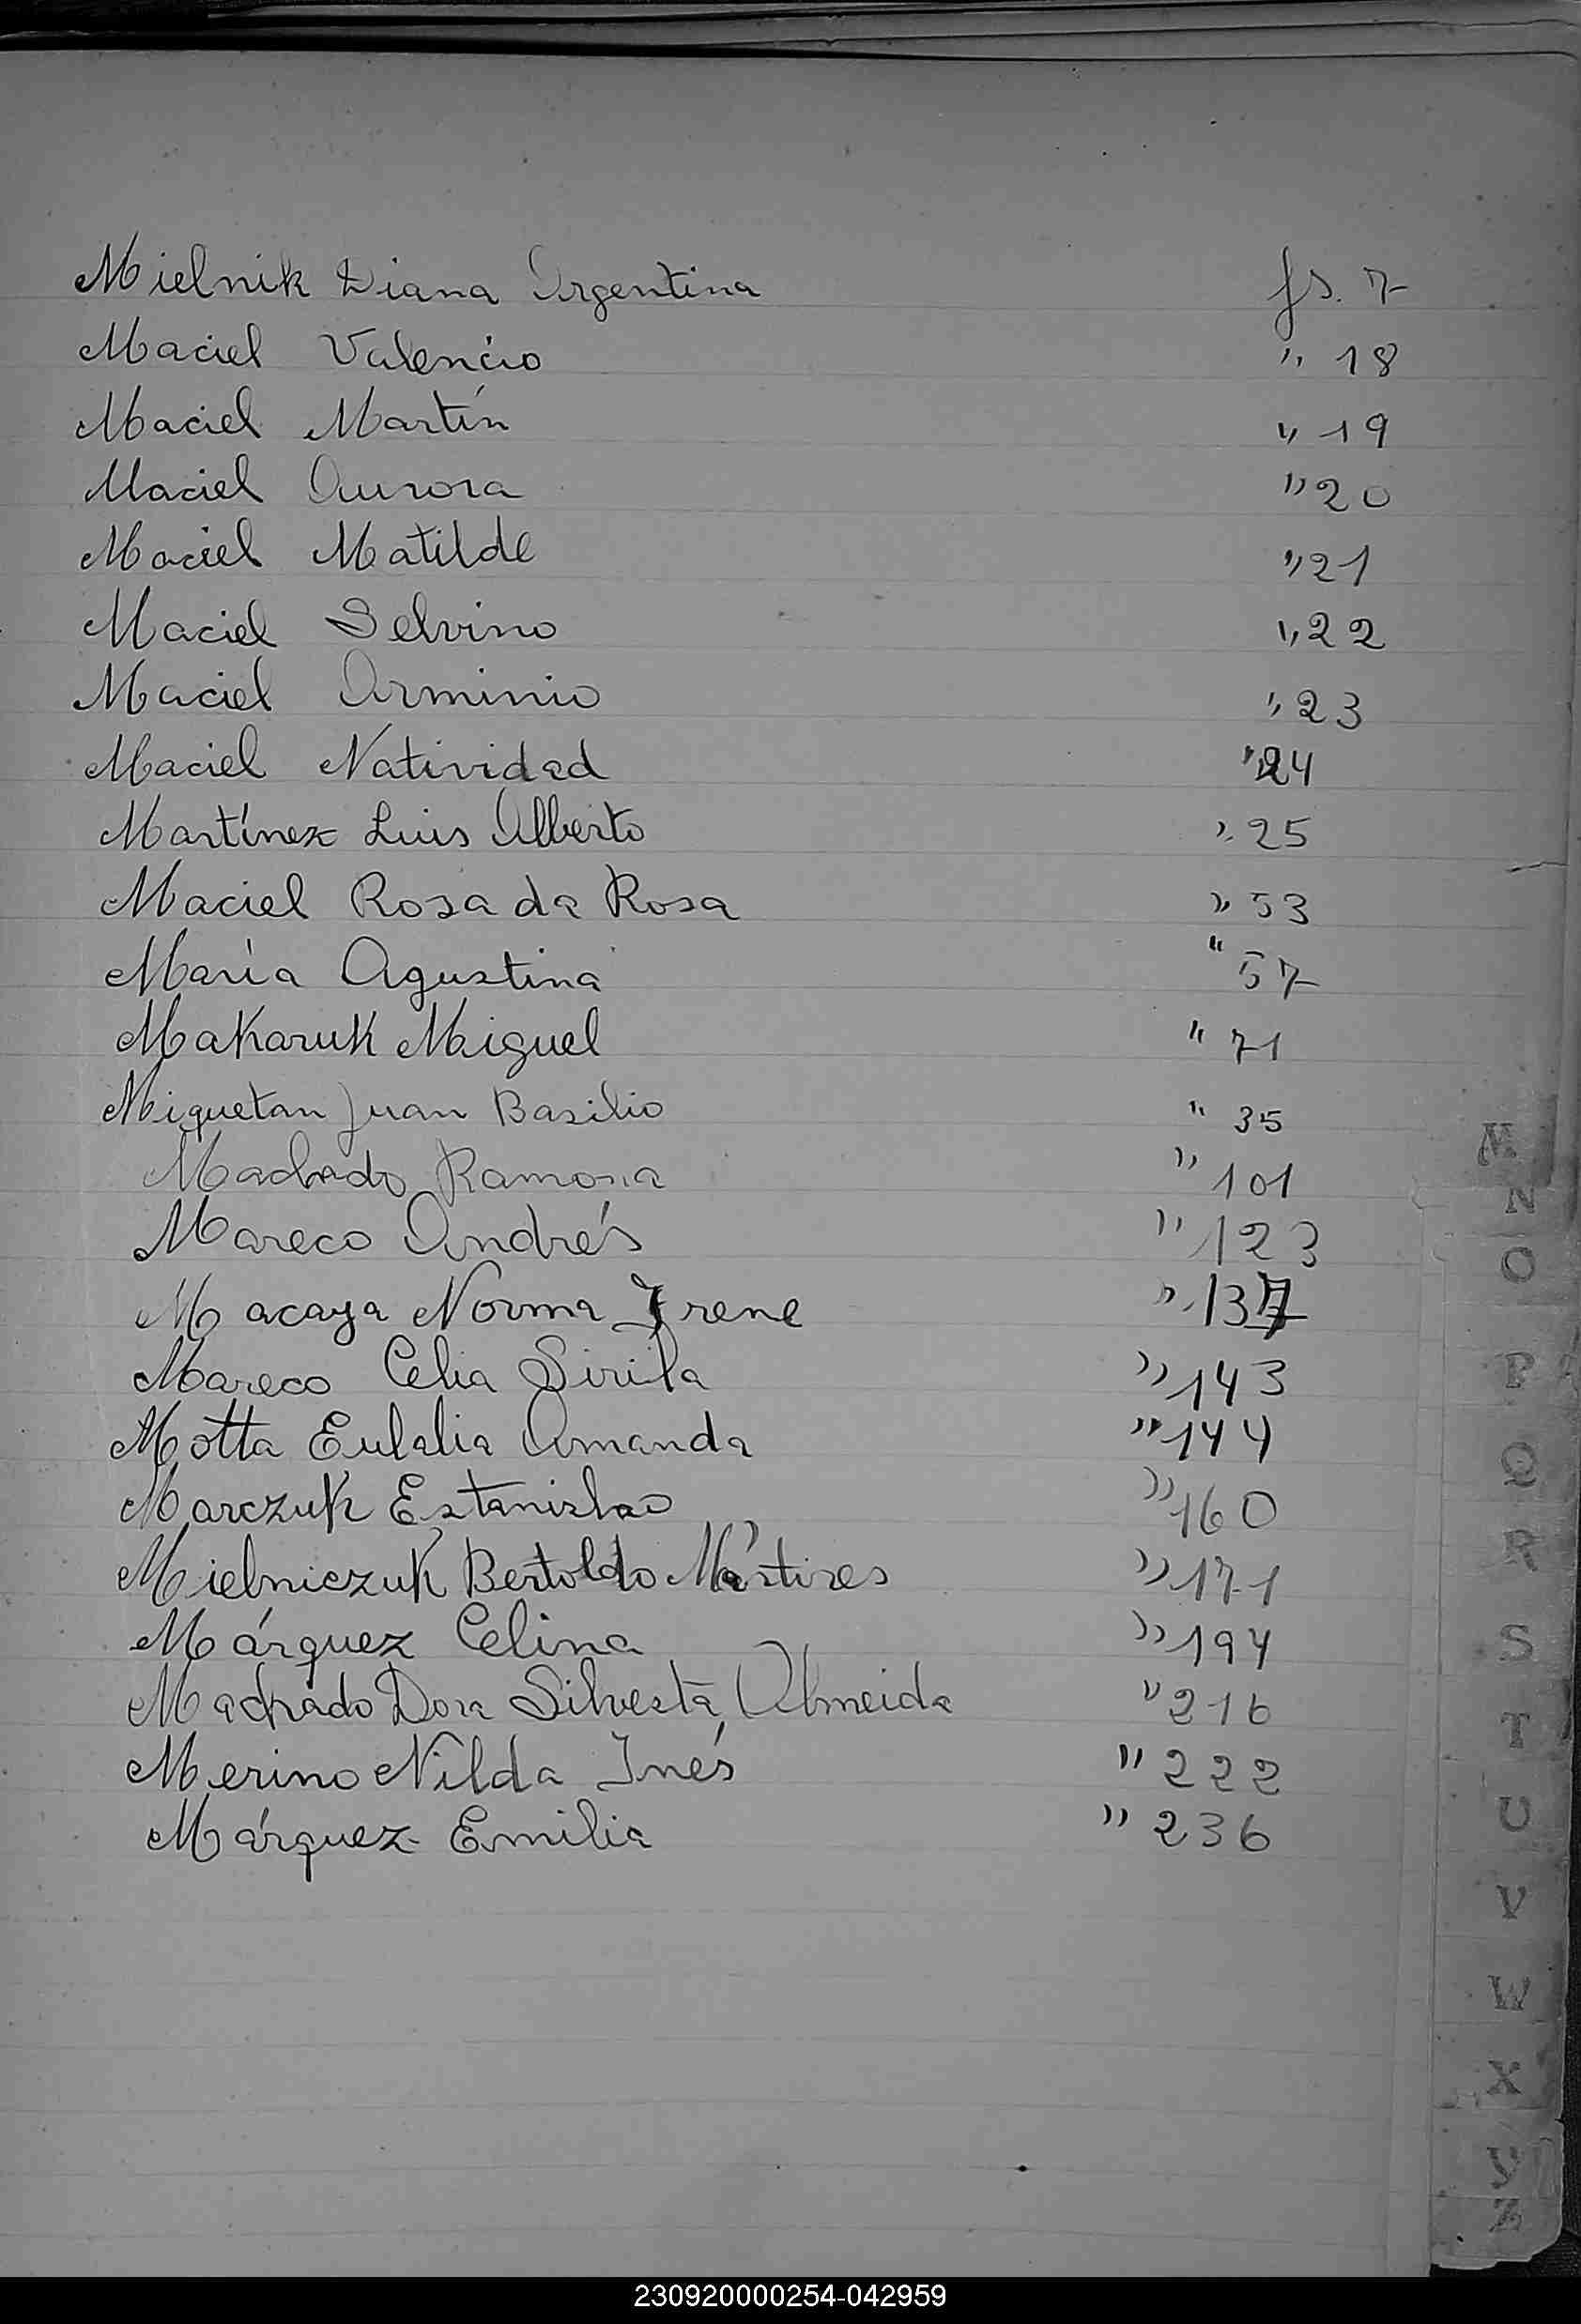 Mielnik Diana Argentina fs. 7
Maciel Valencio " 18
Maciel Martín " 19
Maciel Aurora " 20
Maciel Matilde " 21
Maciel Selvino " 22
Maciel Arminio " 23
Maciel Natividad " 24
Martínez Luis Alberto " 25
Maciel Rosa da Rosa " 53
María Agustina " 57
Makaruk Miguel " 71
Miquetan Juan Basilio " 35
Machado Ramona " 101
Mareco Andrés " 123
Macaya Norma Irene " 137
Mareco Celia Sirila " 143
Motta Eulalia Amanda " 144
Marczuk Estanislao " 160
Mielniczuk Bertoldo Mártires " 171
Márquez Celina " 194
Machado Dora Silvesta Almeida " 216
Merino Nilda Inés " 222
Márquez Emilia " 236
M
N
O
P
Q
R
S
T
U
V
W
X
Y
Z
230920000254-042959